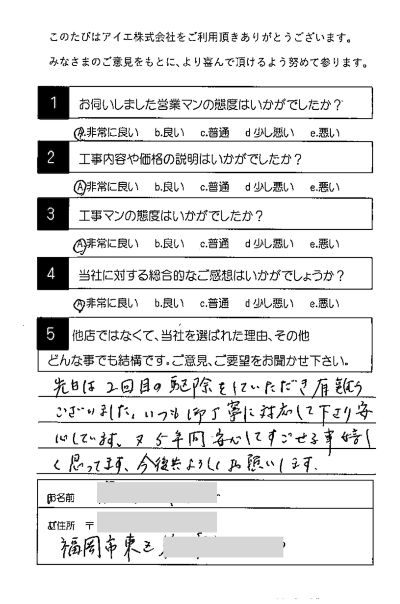 このたびはアイエ株式会社をご利用頂きありがとうございます。
みなさまのご意見をもとに、より喜んで頂けるよう努めて参ります。
1 お伺いしました営業マンの態度はいかがでしたか?
a.非常に良い b.良い c.普通 d 少し悪い e.悪い
2 工事内容や価格の説明はいかがでしたか?
a.非常に良い b.良い c.普通 d 少し悪い e.悪い
3 工事マンの態度はいかがでしたか?
a.非常に良い b.良い c.普通 d 少し悪い e.悪い
4 当社に対する総合的なご感想はいかがでしょうか?
a.非常に良い b.良い c.普通 d 少し悪い e.悪い
5 他店ではなくて、当社を選ばれた理由、その他
どんな事でも結構です。ご意見、ご要望をお聞かせ下さい。
先日は2回目の駆除をしていただき有難う
ございました。いつも御丁寧に対応して下さり安
心しています。又5年間安心してすごせる事嬉し
く思ってます。今後共よろしくお願いします。
お名前
ご住所 〒
福岡市東区